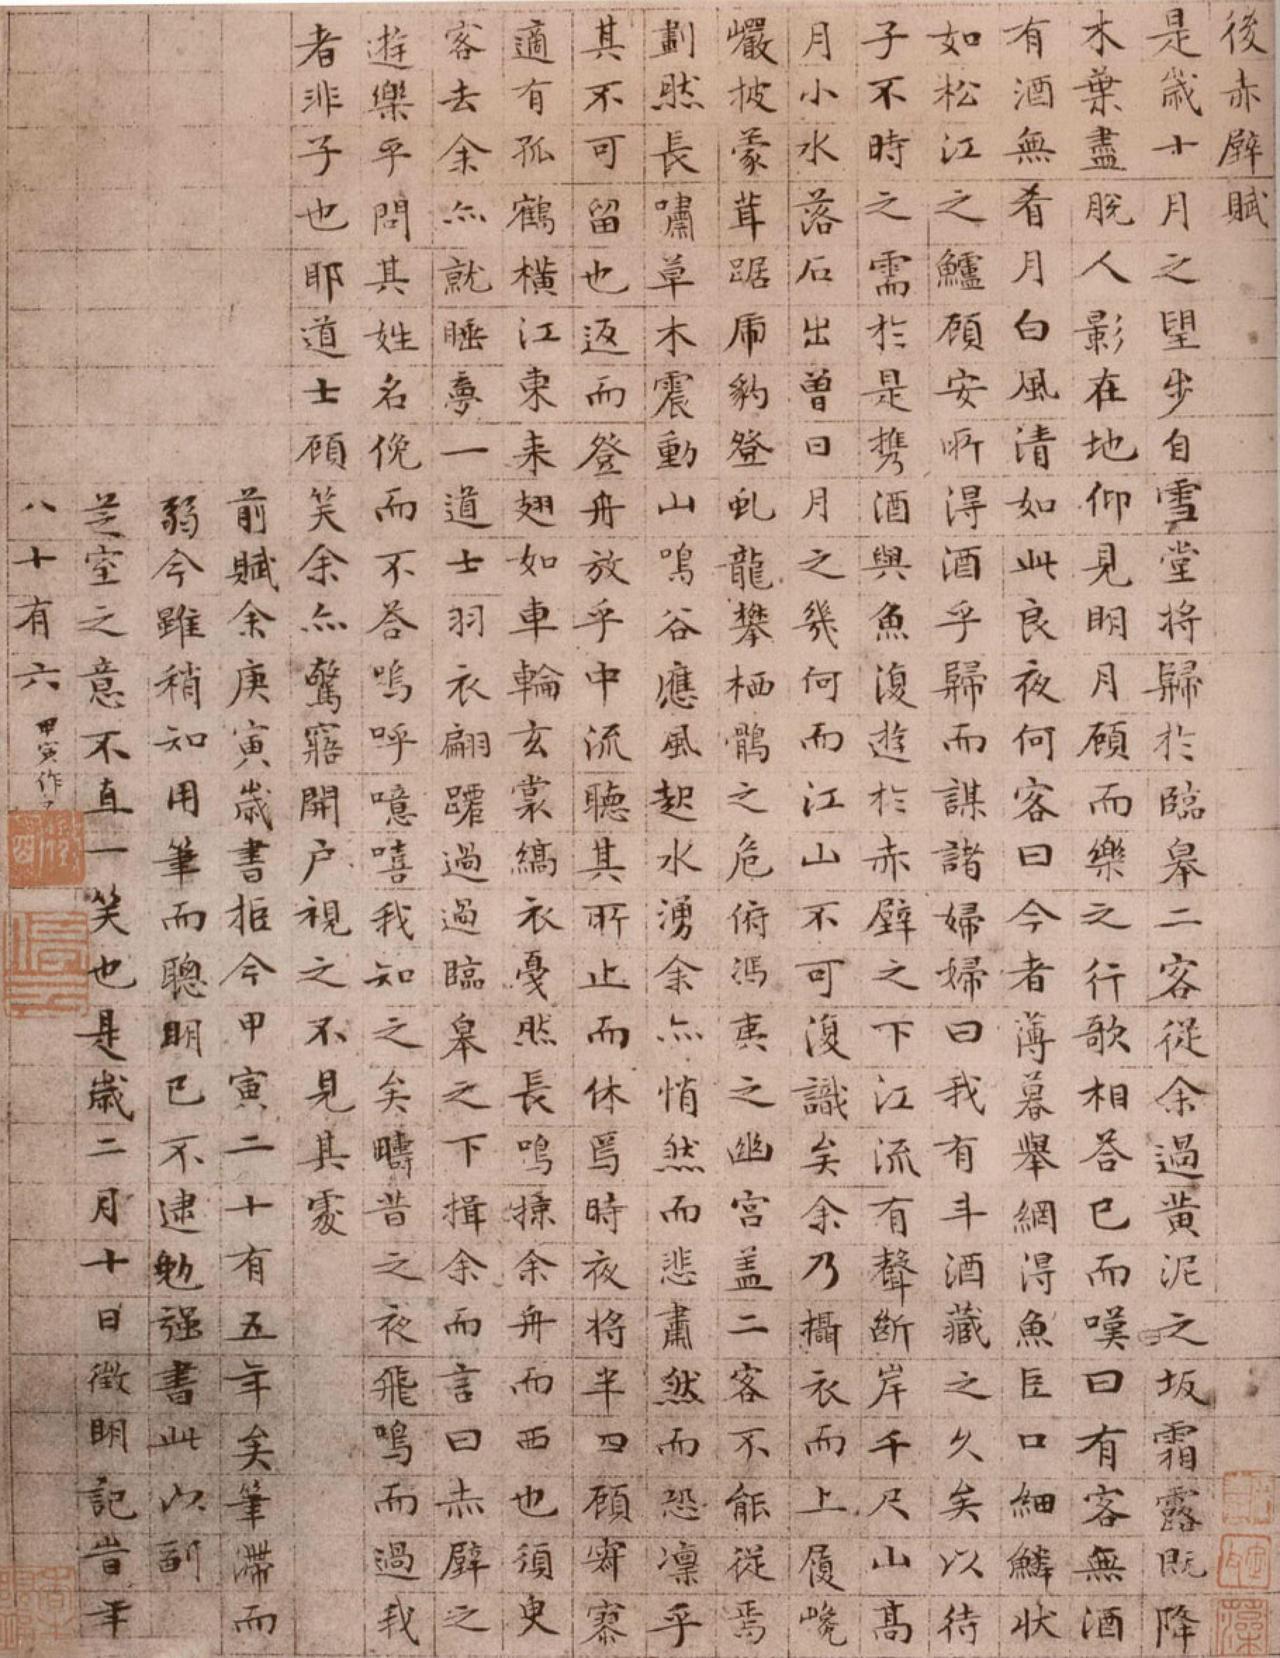 後赤壁賦
是歲十月之望步自雪堂將歸於臨皋二客從余過黃泥之坂霜露既降
木葉盡脫人影在地仰見明月顧而樂之行歌相答已而嘆曰有客無酒
有酒無肴月白風清如此良夜何客曰今者薄暮舉網得魚巨口細鱗狀
如松江之鱸顧安所得酒乎歸而謀諸婦婦曰我有斗酒藏之久矣以待
子不時之需於是攜酒與魚復遊於赤壁之下江流有聲斷岸千尺山高
月小水落石出曾日月之幾何而江山不可復識矣余乃攝衣而上履巉
巖披蒙茸踞虎豹登虬龍攀栖鶻之危俯馮夷之幽宮盖二客不能從焉
劃然長嘯草木震動山鳴谷應風起水湧余亦悄然而悲肅然而恐凜乎
其不可留也返而登舟放乎中流聽其所止而休焉時夜將半四顧寂寥
適有孤鶴橫江東來翅如車輪玄裳縞衣戛然長鳴掠余舟而西也須臾
客去余亦就睡夢一道士羽衣翩躚過過臨皋之下揖余而言曰赤壁之
遊樂乎問其姓名俛而不答嗚呼噫嘻我知之矣疇昔之夜飛鳴而過我
者非子也耶道士顧笑余亦驚寤開户視之不見其處
前賦余庚寅歲書抵今甲寅二十有五年矣筆滯而
弱今雖稍知用筆而聰明已不逮勉强書此以副
芝室之意不直一笑也是歲二月十日徵明記昔年
八十有六甲寅作